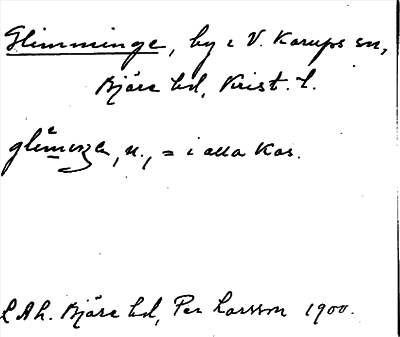 Glimminge, by i V. Karups sn,
Bjäre hd, Krist. l.
n., = i alla kas.
LAL. Bjäre hd, Per Larsson 1900.